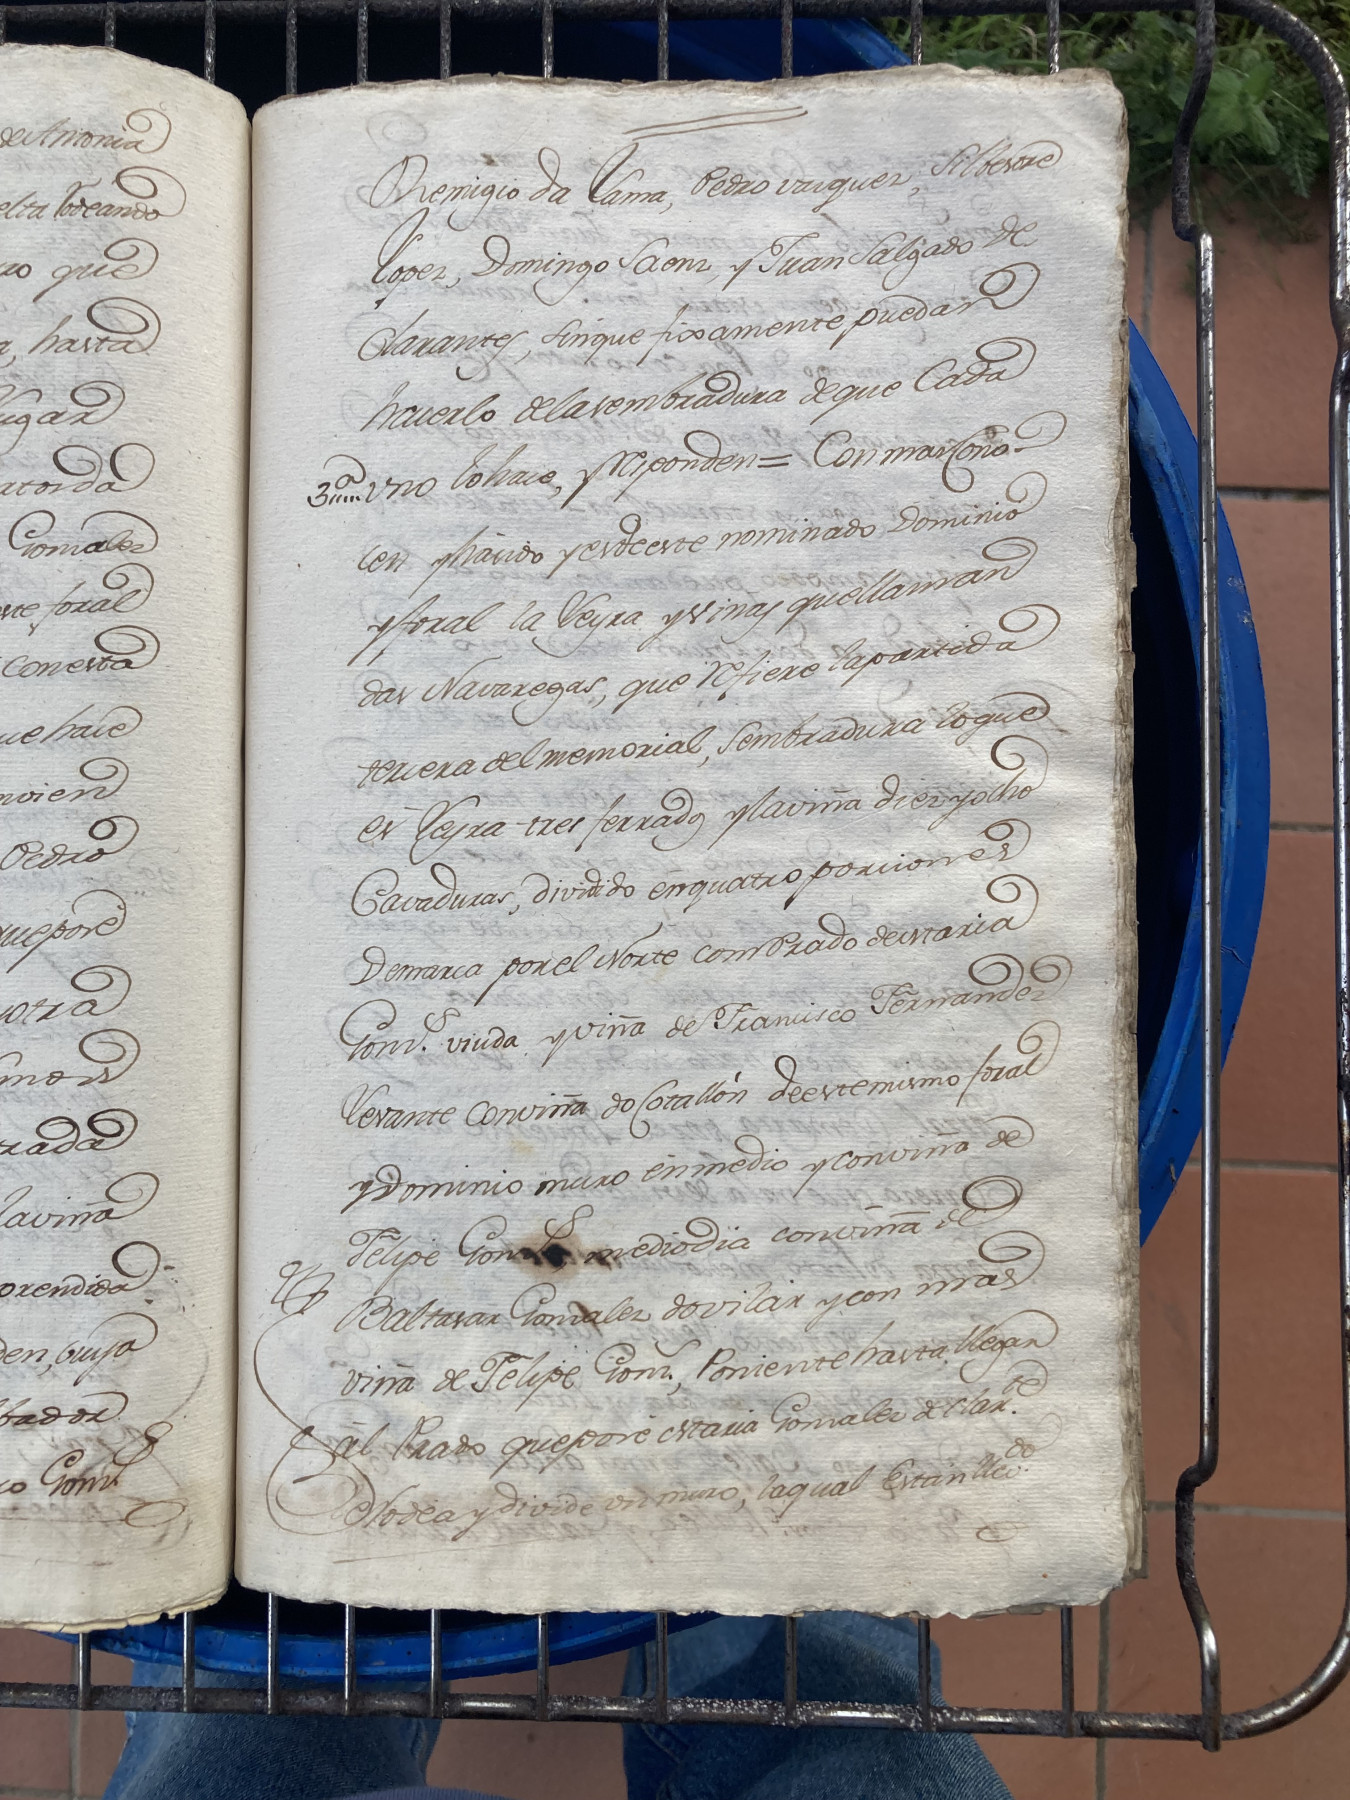 de Antonia
elta Rodeando
ro que
a, hasta
lugar
Gonzalez
este foral
Con esta
que hace
Pedro
que poré
otra
la viña
Remigio da Lama, Pedro vazquez, Silbestre
Lopez, Domingo Saenz, y Juan Salgado de
clarantes, sinque fixamente puedan
hacerlo dela sembradura deque Cada
3ª uno lo hace, y Responden = Con mas Cono-
cen y hávido y es de este nominado Dominio
y foral la Veyra y vinas que llaman
das Navaregas, que Refiere la partida
tercera del memorial, sembradura lo que
es Veyra tres ferrados y la viña diez y ocho
Cavaduras, dividido en quatro porciones
Demarca por el Norte con Prado de Maria
Gonz. viuda y viña de Francisco Fernandez
Levante con viña do Cotallón de este mismo foral
y Dominio muro en medio y con viña de
Felipe Gonz. mediodia con viña de
Baltasar Gonzalez do vilar y con mas
viña de Felipe Gonz., Poniente hasta llegar
ál Prado que poré Maria Gonzalez declar.te
Rodéa y divide un muro, la qual Están llev.do